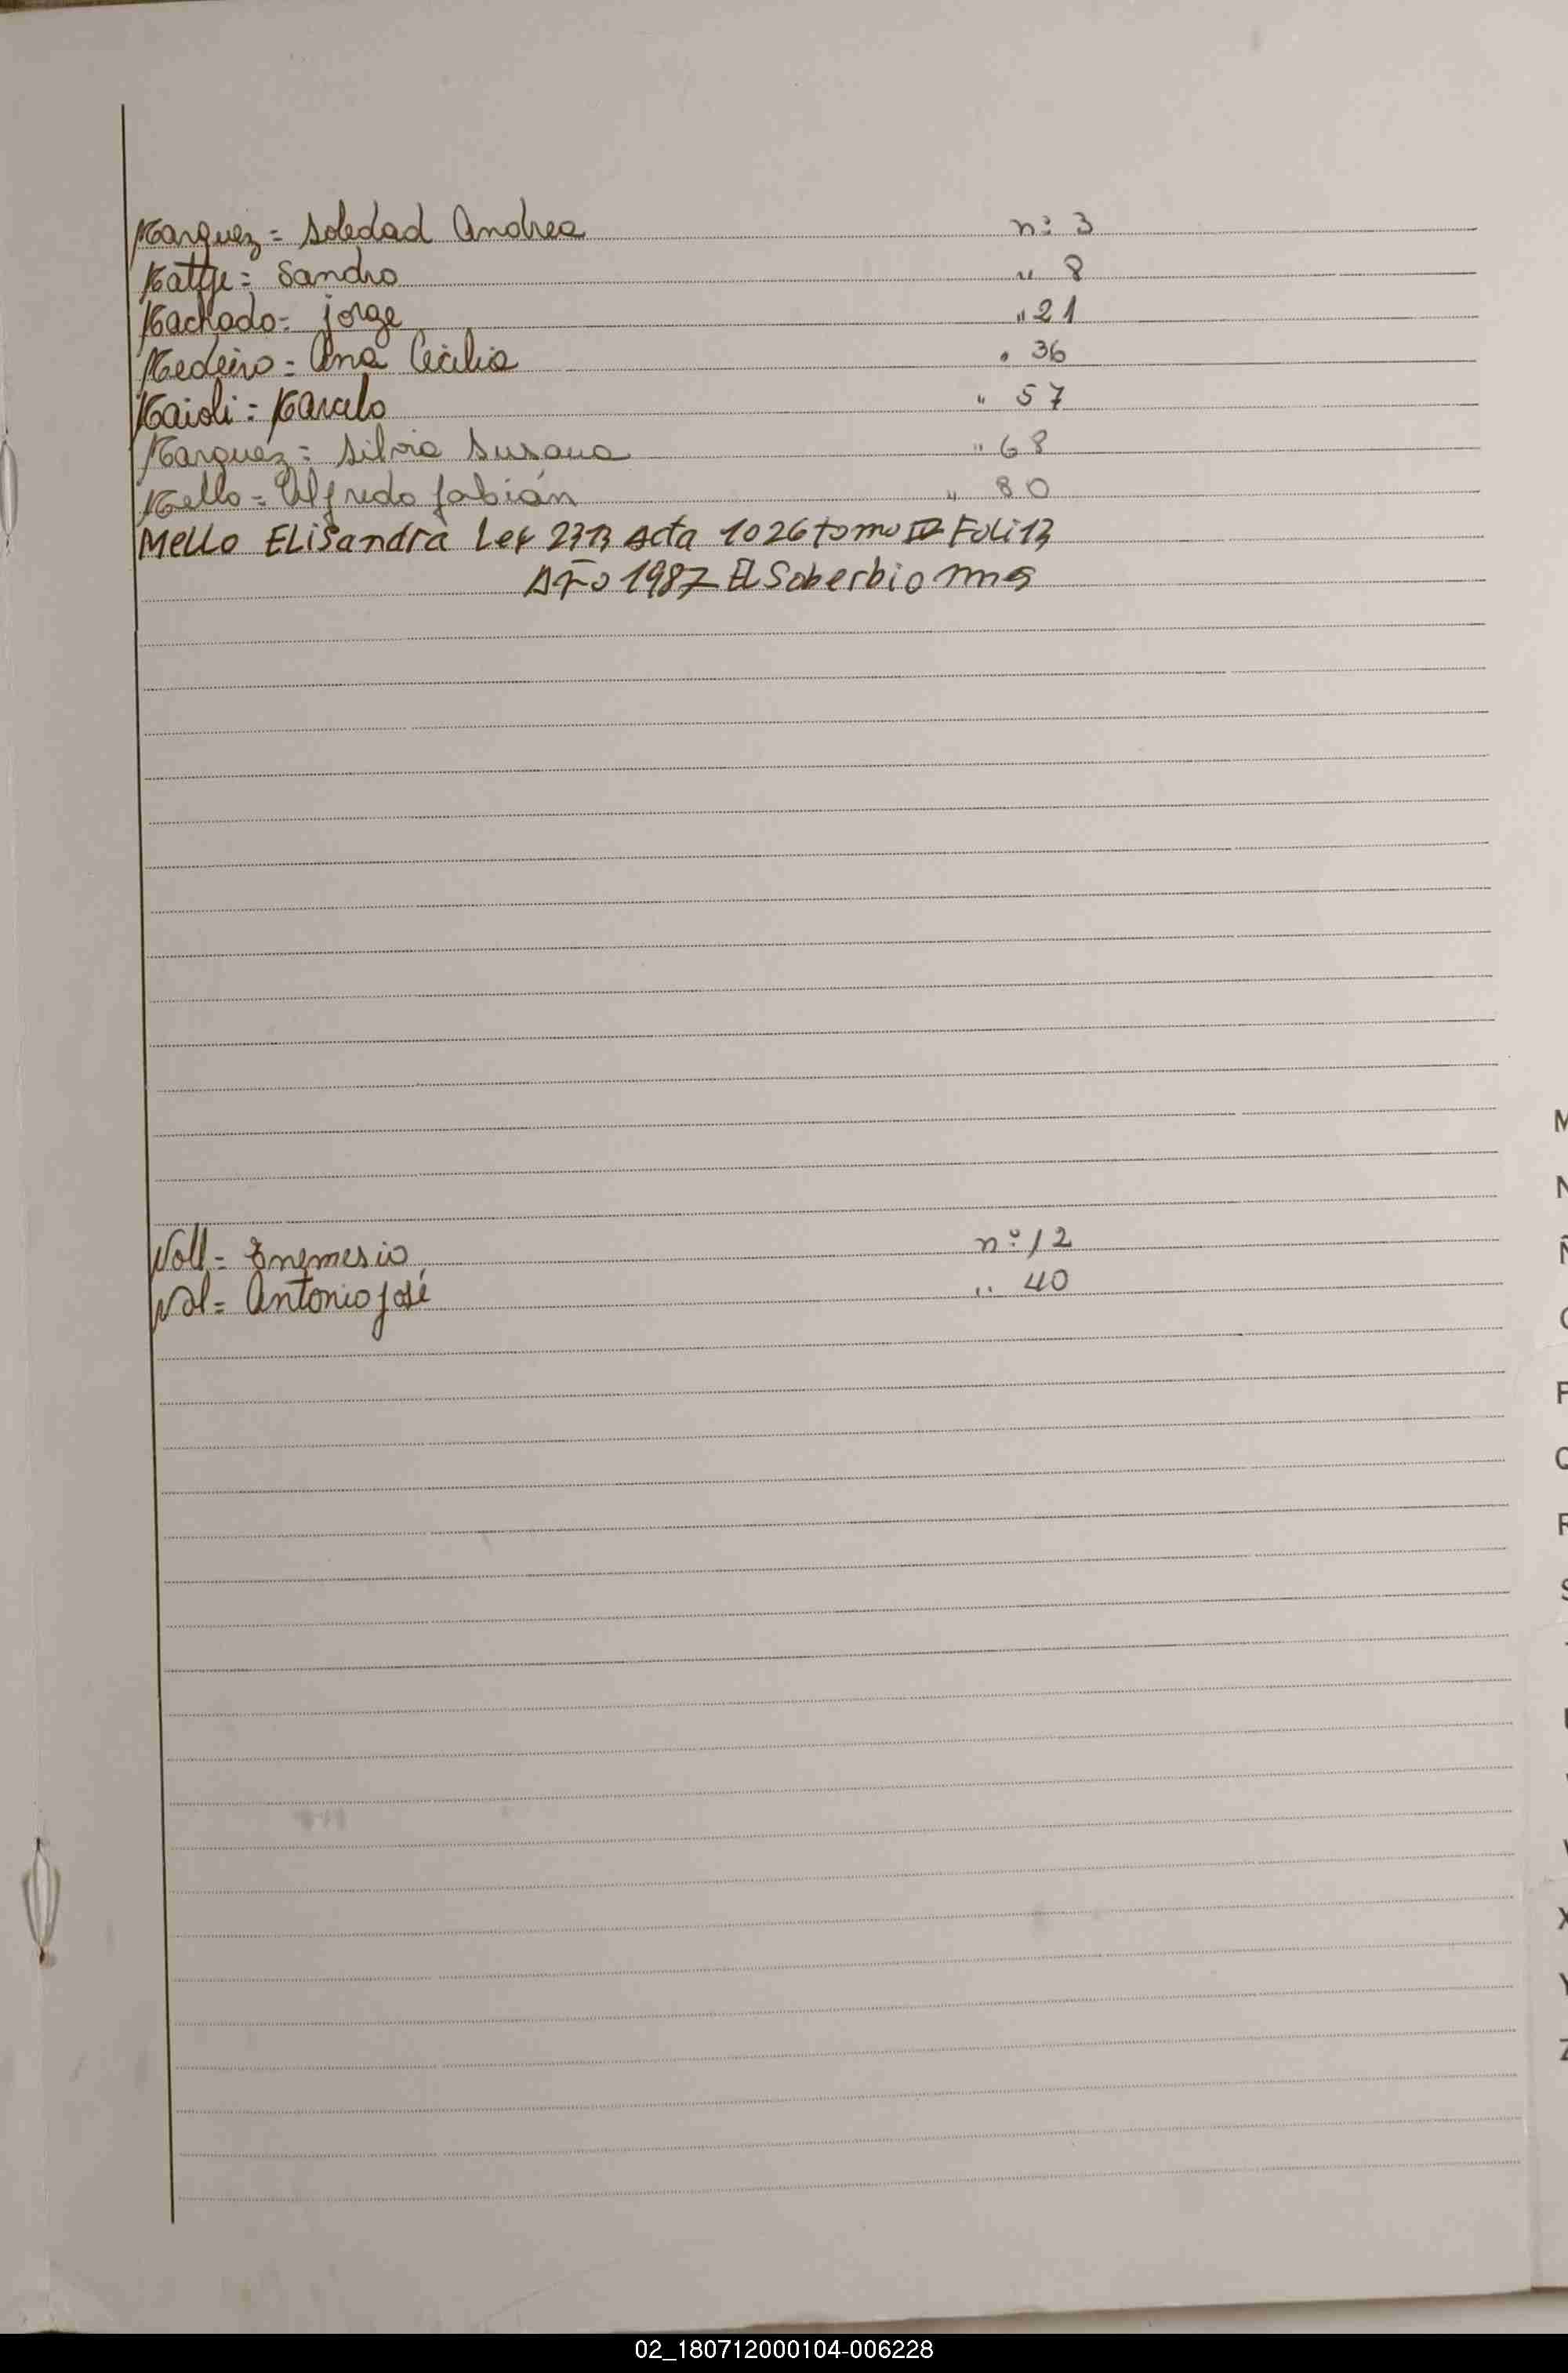 Marquez = Soledad Andrea n° 3
Mattje = Sandro " 8
Machado = jorge " 21
Medeiro = Ana Cecilia " 36
Maioli = Marcelo " 57
Marquez = Silvia Susana " 68
Mello = Alfredo fabián " 80
Mello ELisandra Ley Acta 1026 tomo Foli 13
Año 1987 El Soberbio mns
Noll = Enemesio n° 12
Nol = Antonio josé " 40
M
N
Ñ
O
P
Q
R
S
T
U
V
W
X
Y
Z
02_180712000104-006228